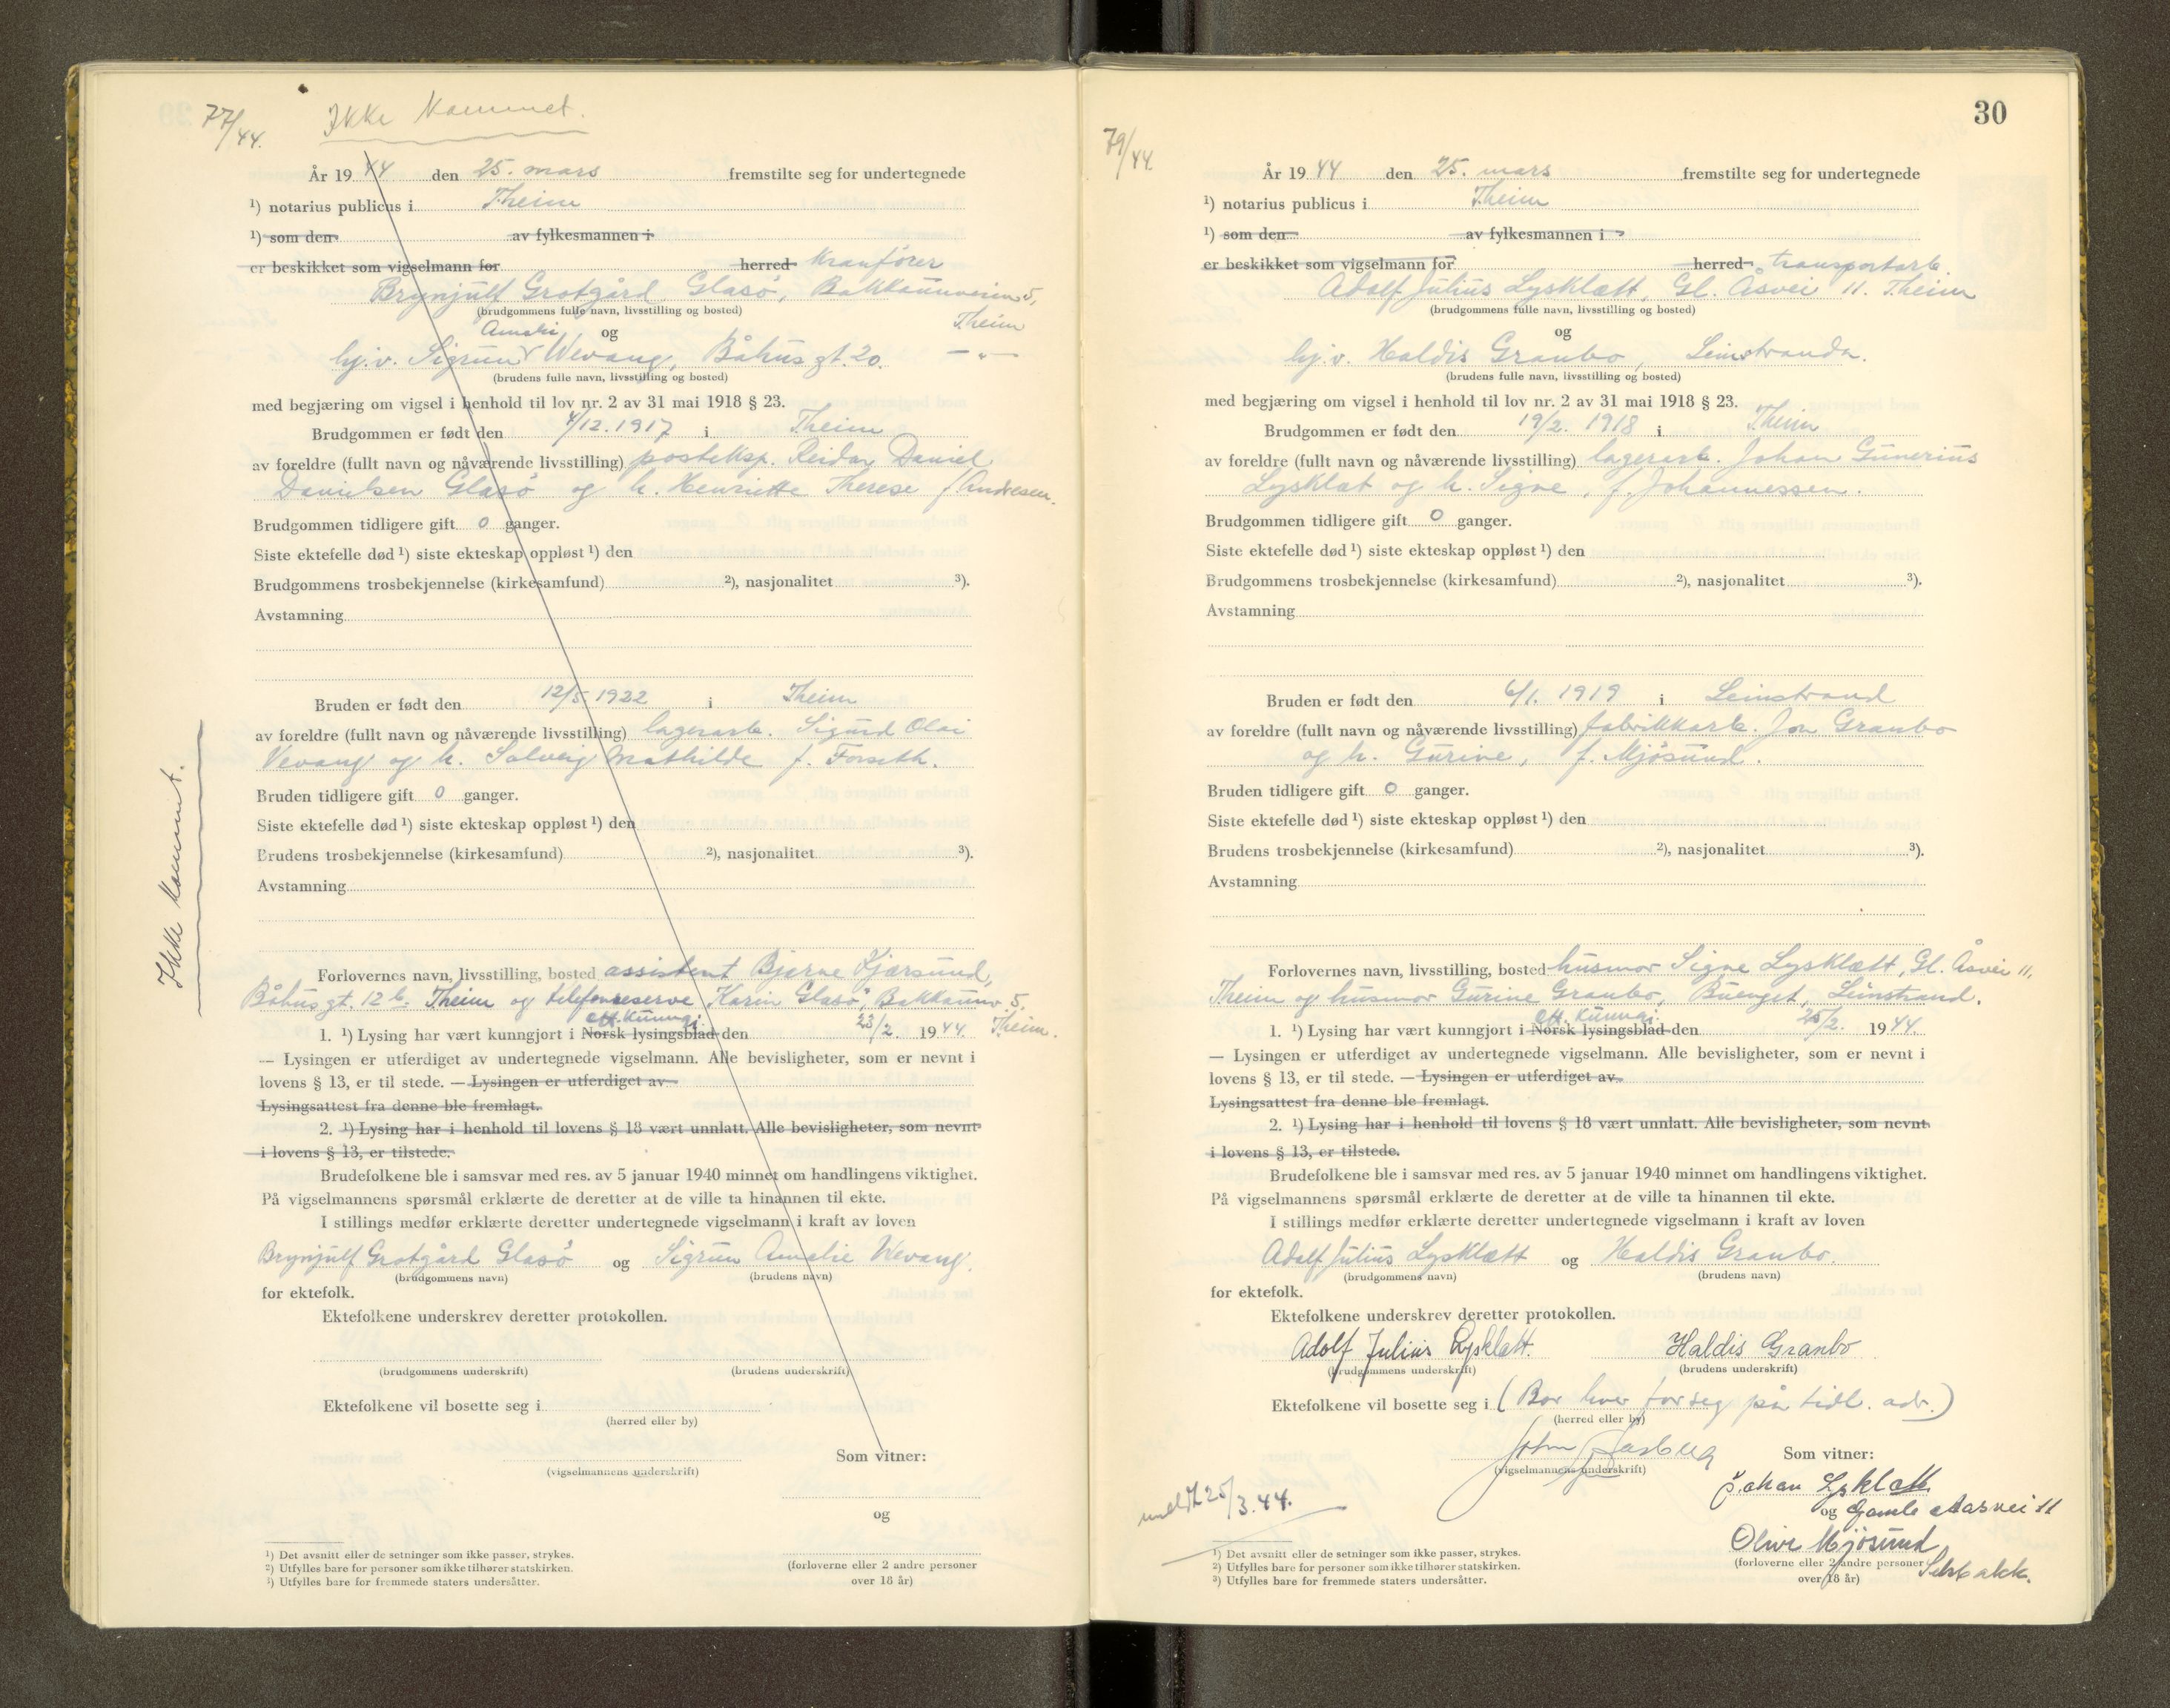 77/44.
Ikke kommet.
År 1944 den 25. mars fremstilte seg for undertegnede
¹) notarius publicus i Theim
¹) som den av fylkesmannen i
er beskikket som vigselmann for herred kranfører
Brynjulf Grotgård Glasö, Bakkaunveien 5,
(brudgommens fulle navn, livsstilling og bosted) Theim
Amalie og
hj.v. Sigrun Wevang, Båhusgt. 20. — " —
(brudens fulle navn, livsstilling og bosted)
med begjæring om vigsel i henhold til lov nr. 2 av 31 mai 1918 § 23.
Brudgommen er født den 4/12. 1917 i Theim
av foreldre (fullt navn og nåværende livsstilling) posteksp. Reidar Daniel
Danielsen Glasö og h. Henriette Therese f. Andresen.
Brudgommen tidligere gift 0 ganger.
Siste ektefelle død ¹) siste ekteskap oppløst ¹) den
Brudgommens trosbekjennelse (kirkesamfund) ²), nasjonalitet ³).
Avstamning
Bruden er født den 12/5 1922 i Theim
av foreldre (fullt navn og nåværende livsstilling) lagerarb. Sigurd Olai
Vevang og h. Solveig Mathilde f. Forseth.
Bruden tidligere gift 0 ganger.
Siste ektefelle død ¹) siste ekteskap oppløst ¹) den
Brudens trosbekjennelse (kirkesamfund) ²), nasjonalitet ³).
Avstamning
Ikke kommet.
Forlovernes navn, livsstilling, bosted assistent Bjarne Kjærsund,
Båhusgt. 12 b. Theim og telefonreserve Karin Glasö, Bakkaunv. 5,
Theim.
off. kunngj.
1. ¹) Lysing har vært kunngjort i Norsk lysingsblad den 23/2. 1944.
— Lysingen er utferdiget av undertegnede vigselmann. Alle bevisligheter, som er nevnt i
lovens § 13, er til stede. — Lysingen er utferdiget av
Lysingsattest fra denne ble fremlagt.
2. ¹) Lysing har i henhold til lovens § 18 vært unnlatt. Alle bevisligheter, som nevnt
i lovens § 13, er tilstede.
Brudefolkene ble i samsvar med res. av 5 januar 1940 minnet om handlingens viktighet.
På vigselmannens spørsmål erklærte de deretter at de ville ta hinannen til ekte.
I stillings medfør erklærte deretter undertegnede vigselmann i kraft av loven
Brynjulf Grotgård Glasö og Sigrun Amalie Wevang.
(brudgommens navn) (brudens navn)
for ektefolk.
Ektefolkene underskrev deretter protokollen.
(brudgommens underskrift) (brudens underskrift)
Ektefolkene vil bosette seg i
(herred eller by)
Som vitner:
(vigselmannens underskrift)
og
(forloverne eller 2 andre personer
over 18 år)
¹) Det avsnitt eller de setninger som ikke passer, strykes.
²) Utfylles bare for personer som ikke tilhører statskirken.
³) Utfylles bare for fremmede staters undersåtter.
30
79/44.
År 1944 den 25. mars fremstilte seg for undertegnede
¹) notarius publicus i Theim
¹) som den av fylkesmannen i
er beskikket som vigselmann for herred transportarb.
Adolf Julius Lysklætt, Gl. Åsvei 11. Theim
(brudgommens fulle navn, livsstilling og bosted)
og
hj.v. Haldis Granbo, Leinstranda.
(brudens fulle navn, livsstilling og bosted)
med begjæring om vigsel i henhold til lov nr. 2 av 31 mai 1918 § 23.
Brudgommen er født den 19/2. 1918 i Theim
av foreldre (fullt navn og nåværende livsstilling) lagerarb. Johan Gunerius
Lysklæt og h. Signe, f. Johannessen.
Brudgommen tidligere gift 0 ganger.
Siste ektefelle død ¹) siste ekteskap oppløst ¹) den
Brudgommens trosbekjennelse (kirkesamfund) ²), nasjonalitet ³).
Avstamning
Bruden er født den 6/1. 1919 i Leinstrand
av foreldre (fullt navn og nåværende livsstilling) fabrikkarb. Jon Granbo
og h. Gurine, f. Mjösund.
Bruden tidligere gift 0 ganger.
Siste ektefelle død ¹) siste ekteskap oppløst ¹) den
Brudens trosbekjennelse (kirkesamfund) ²), nasjonalitet ³).
Avstamning
Forlovernes navn, livsstilling, bosted husmor Signe Lysklætt, Gl. Åsvei 11,
Theim og husmor Gurine Granbo, Buenget, Leinstrand.
off. kunngj.
1. ¹) Lysing har vært kunngjort i Norsk lysingsblad den 25/2. 1944
— Lysingen er utferdiget av undertegnede vigselmann. Alle bevisligheter, som er nevnt i
lovens § 13, er til stede. — Lysingen er utferdiget av
Lysingsattest fra denne ble fremlagt.
2. ¹) Lysing har i henhold til lovens § 18 vært unnlatt. Alle bevisligheter, som nevnt
i lovens § 13, er tilstede.
Brudefolkene ble i samsvar med res. av 5 januar 1940 minnet om handlingens viktighet.
På vigselmannens spørsmål erklærte de deretter at de ville ta hinannen til ekte.
I stillings medfør erklærte deretter undertegnede vigselmann i kraft av loven
Adolf Julius Lysklætt og Haldis Granbo.
(brudgommens navn) (brudens navn)
for ektefolk.
Ektefolkene underskrev deretter protokollen.
Adolf Julius Lysklætt. Haldis Granbo
(brudgommens underskrift) (brudens underskrift)
Ektefolkene vil bosette seg i (Bor hver for seg på tidl. adr.)
(herred eller by)
John Aasbug Som vitner:
(vigselmannens underskrift)
Johan Lysklætt
meldt 25/3.44.
og Gamle Aasvei 11
Olive Mjösund
(forloverne eller 2 andre personer Selsbakk.
over 18 år)
¹) Det avsnitt eller de setninger som ikke passer, strykes.
²) Utfylles bare for personer som ikke tilhører statskirken.
³) Utfylles bare for fremmede staters undersåtter.